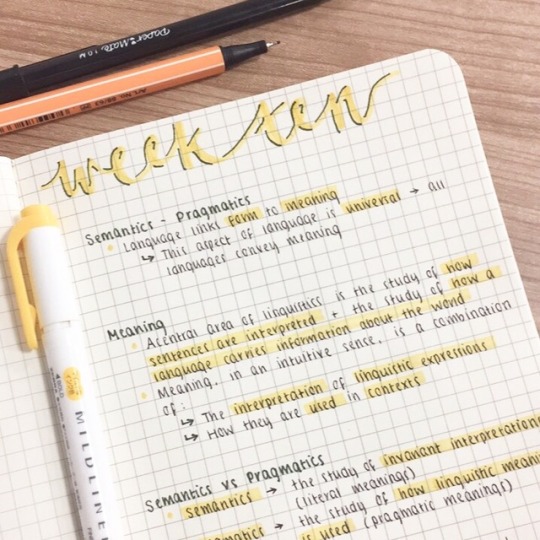 Paper Mate
week ten
Semantics - Pragmatics
Language links form to meaning
↳ This aspect of language is universal → all
languages convey meaning
Meaning
A central area of linguistics is the study of how
sentences are interpreted + the study of how a
language carries information about the world
Meaning, in an intuitive sense, is a combination
of:
↳ The interpretation of linguistic expressions
↳ How they are used in contexts
Semantics vs Pragmatics
semantics → the study of invariant interpretation
(literal meanings)
→ the study of how linguistic
is used (pragmatic meanings)
MILDLINER